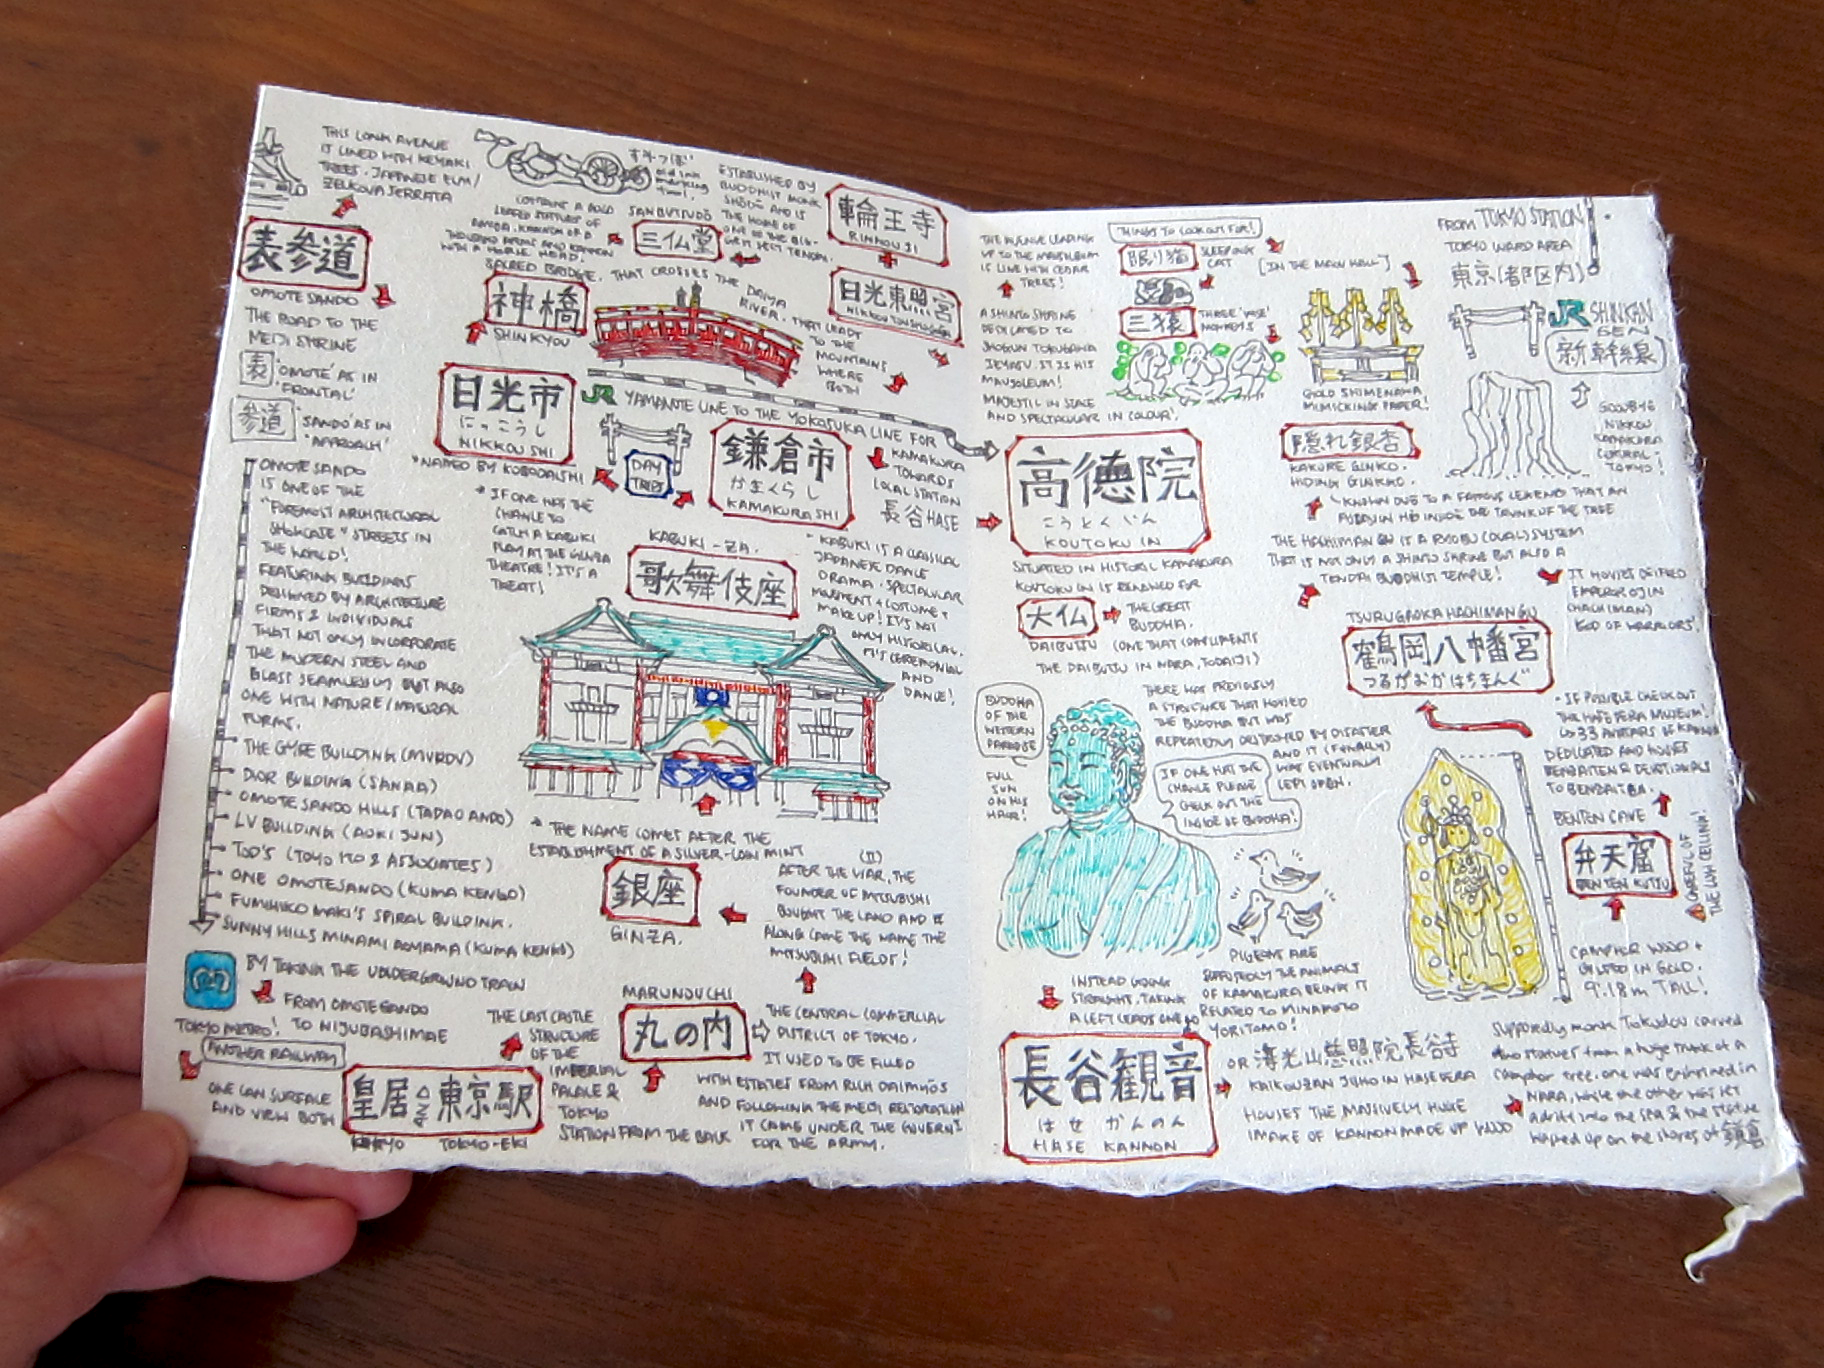 THIS LONG AVENUE
IS LINED WITH KEYAKI
TREES. JAPANESE ELM/
ZELKOVA SERRATA
表参道
OMOTE SANDO
THE ROAD TO THE
MEIJI SHRINE
表
'OMOTE' AS IN
'FRONTAL'
参道
'SANDO' AS IN
'APPROACH'
OMOTE SANDO
IS ONE OF THE
"FOREMOST ARCHITECTURAL
SHOWCASE" STREETS IN
THE WORLD!
FEATURING BUILDINGS
DESIGNED BY ARCHITECTURE
FIRMS & INDIVIDUALS
THAT NOT ONLY INCORPORATE
THE MODERN STEEL AND
GLASS SEAMLESSLY BUT ALSO
ONE WITH NATURE/NATURAL
FORMS.
THE GYRE BUILDING (MVRDV)
DIOR BUILDING (SANAA)
OMOTE SANDO HILLS (TADAO ANDO)
LV BUILDING (AOKI JUN)
TOD'S (TOYO ITO & ASSOCIATES)
ONE OMOTESANDO (KUMA KENGO)
FUMIHIKO MAKI'S SPIRAL BUILDING.
SUNNY HILLS MINAMI AOYAMA (KUMA KENGO)
BY TAKING THE UNDERGROUND TRAIN
FROM OMOTE SANDO
TO NIJUBASHIMAE
TOKYO METRO!
ANOTHER RAILWAY
ONE CAN SURFACE
AND VIEW BOTH
皇居 AND 東京駅
TOKYO-EKI
THE LAST CASTLE
STRUCTURE
OF THE
IMPERIAL
PALACE &
TOKYO
STATION FROM THE BACK
old ink
marking
tool.
CONTAINS A GOLD
SANBUTSUDŌ
三仏堂
ESTABLISHED BY
BUDDHIST MONK
SHŌDŌ AND IS
THE HOME OF
輪王寺
RINNOU JI
SACRED BRIDGE, THAT CROSSES THE DAIYA
RIVER, THAT LEADS
TO THE
MOUNTAINS
WHERE
BOTH
神橋
SHINKYOU
日光東照宮
日光市
にっこうし
NIKKOU SHI
*NAMED BY KOBODAISHI
JR YAMANOTE LINE TO THE YOKOSUKA LINE FOR
KAMAKURA
TOWARDS
LOCAL STATION
長谷 HASE
DAY
TRIPS
鎌倉市
かまくらし
KAMAKURA SHI
* IF ONE HAS THE
CHANCE TO
CATCH A KABUKI
PLAY AT THE GINZA
THEATRE! IT'S A
TREAT!
KABUKI-ZA.
歌舞伎座
* KABUKI IS A CLASSICAL
JAPANESE DANCE
DRAMA. SPECTACULAR
MOVEMENT + COSTUME +
MAKE UP! IT'S NOT
ONLY HISTORICAL,
IT'S CEREMONIAL
AND
DANCE!
* THE NAME COMES AFTER THE
ESTABLISHMENT OF A SILVER-COIN MINT
銀座
GINZA.
AFTER THE WAR, THE
FOUNDER OF MITSUBISHI
BOUGHT THE LAND AND
ALONG CAME THE NAME THE
MITSUBISHI FIELDS!
MARUNOUCHI
丸の内
THE CENTRAL COMMERCIAL
DISTRICT OF TOKYO.
IT USED TO BE FILLED
WITH ESTATES FROM RICH DAIMYŌS
AND FOLLOWING THE MEIJI RESTORATION
IT CAME UNDER THE GOVERNMT
FOR THE ARMY.
THE AVENUE LEADING
UP TO THE MAUSOLEUM
IS LINE WITH CEDAR
TREES!
A SHINTO SHRINE
DEDICATED TO
SHOGUN TOKUGAWA
IEYASU. IT IS HIS
MAUSOLEUM!
MAJESTIC IN SCALE
AND SPECTACULAR IN COLOUR!
THINGS TO LOOK OUT FOR!
眠り猫
SLEEPING
CAT
三猿
THREE 'WISE'
MONKEYS
[IN THE MAIN HALL]
GOLD SHIMENAWA
MIMICKING PAPER!
FROM TOKYO STATION
TOKYO WARD AREA
東京(都区内)
JR SHINKAN
SEN
新幹線
GOODBYE
NIKKOU
KAMAKURA
CENTRAL-
TOKYO!
隠れ銀杏
KAKURE GINKO.
HIDING GINKGO.
KNOWN DUE TO A FAMOUS LEGEND THAT AN
ASSASSIN HID INSIDE THE TRUNK OF THE TREE
THE HACHIMAN GU IS A RYOBU (DUAL) SYSTEM
THAT IS NOT ONLY A SHINTO SHRINE BUT ALSO A
TENDAI BUDDHIST TEMPLE!
IT HOUSES DEIFIED
EMPEROR OJIN
(HACHIMAN)
'GOD OF WARRIORS'.
TSURUGAOKA HACHIMAN GU
鶴岡八幡宮
つるがおかはちまんぐ
高徳院
こうとくいん
KOUTOKU IN
SITUATED IN HISTORICAL KAMAKURA
KOUTOKU IN IS RENOWNED FOR
大仏
THE GREAT
BUDDHA.
DAIBUTSU (ONE THAT COMPLIMENTS
THE DAIBUTSU IN NARA, TODAIJI)
BUDDHA
OF THE
WESTERN
PARADISE
FULL
SUN
ON HIS
HAIR!
THERE WAS PREVIOUSLY
A STRUCTURE THAT HOUSED
THE BUDDHA BUT WAS
REPEATEDLY DESTROYED BY DISASTER
AND IT (FINALLY)
WAS EVENTUALLY
LEFT OPEN.
IF ONE HAS THE
CHANCE PLEASE
CHECK OUT THE
INSIDE OF BUDDHA!
PIGEONS ARE
SUPPOSEDLY THE ANIMALS
OF KAMAKURA BEING IT
RELATED TO MINAMOTO
YORITOMO!
INSTEAD GOING
STRAIGHT, TAKING
A LEFT LEADS ONE TO
長谷観音
はせ かんのん
HASE KANNON
OR 海光山慈照院長谷寺
KAIKOUZAN JISHO IN HASEDERA
HOUSES THE MASSIVELY HUGE
IMAGE OF KANNON MADE UP WOOD
* IF POSSIBLE CHECK OUT
THE HASEDERA MUSEUM!
33 AVATARS OF KANNON
DEDICATED AND HOUSES
BENZAITEN & DEVOTIONALS
TO BENZAITEN.
BENTEN CAVE
弁天窟
BENTEN KUTSU
CAREFUL OF
THE LOW CEILING!
CAMPHOR WOOD +
GILTED IN GOLD.
9.18m TALL!
Supposedly monk Tokudou carved
two statues from a huge trunk of a
camphor tree. one was enshrined in
NARA, while the other was set
adrift into the sea & the statue
washed up on the shores of 鎌倉